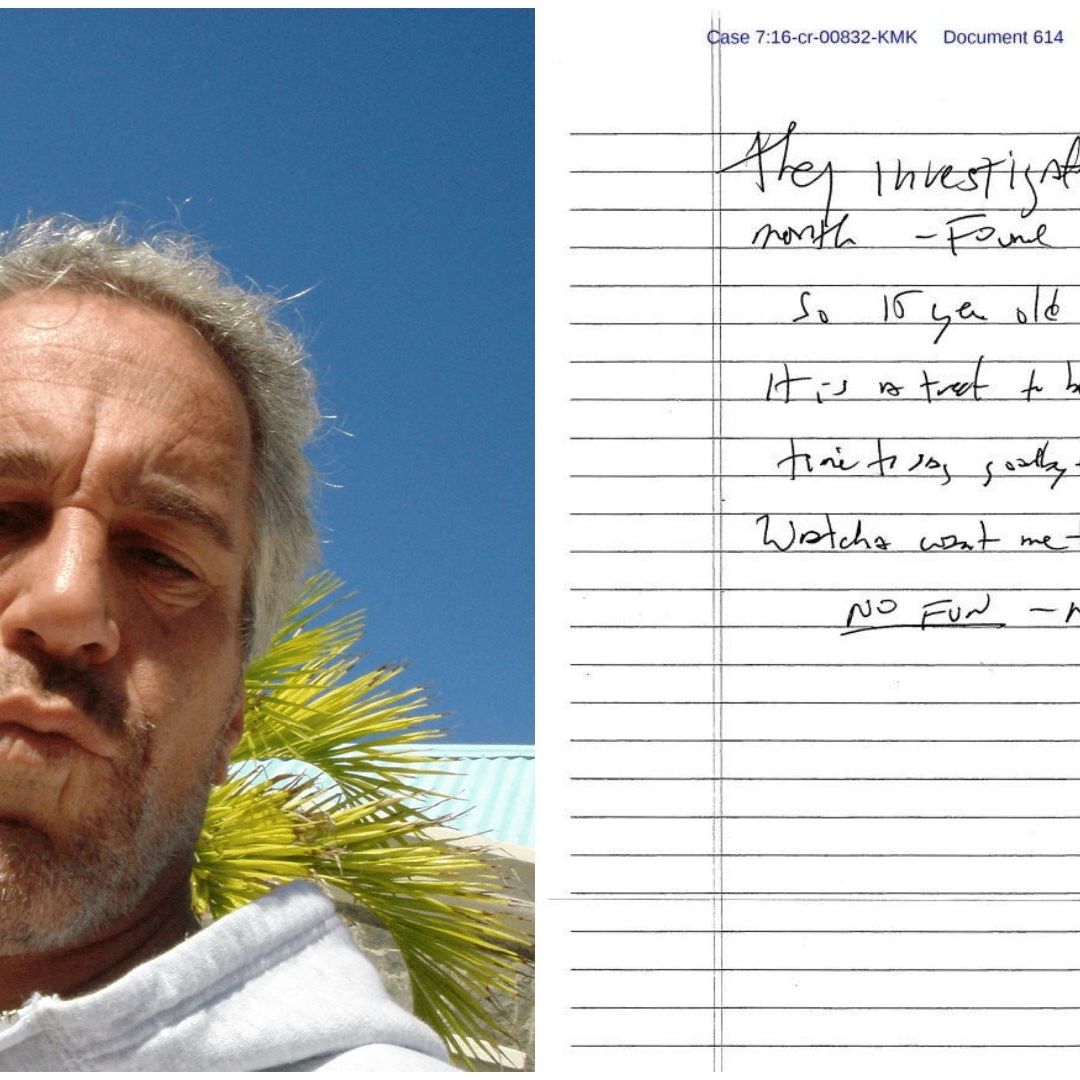 Case 7:16-cr-00832-KMK Document 614
They investigat
month - Found
So 15 year old
It is a treat to b
time to say goodby
Watcha want me t
NO FUN -